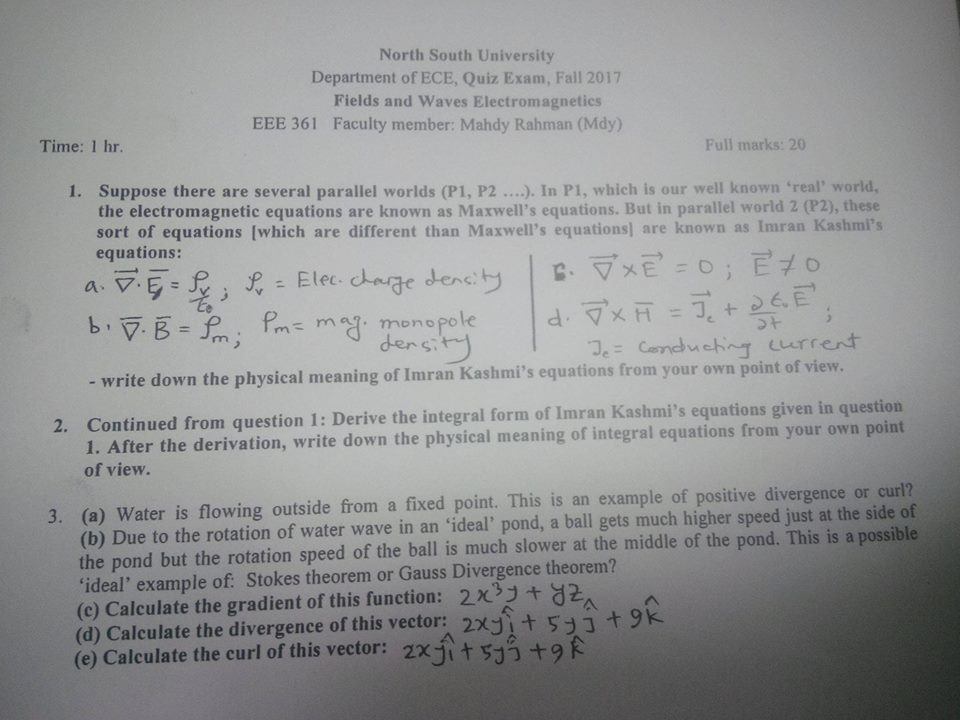 North South University
Department of ECE, Quiz Exam, Fall 2017
Fields and Waves Electromagnetics
EEE 361 Faculty member: Mahdy Rahman (Mdy)
Time: 1 hr. Full marks: 20
1. Suppose there are several parallel worlds (P1, P2 ....). In P1, which is our well known ‘real’ world,
the electromagnetic equations are known as Maxwell’s equations. But in parallel world 2 (P2), these
sort of equations [which are different than Maxwell’s equations] are known as Imran Kashmi’s
equations:
a. ∇⃗·E⃗ = ρv/ε0 ; ρv = Elec. charge dencity
b. ∇⃗·B̅ = ρm ; ρm = mag. monopole
density
c. ∇⃗×E⃗ = 0 ; E⃗ ≠ 0
d. ∇⃗×H̅ = J⃗c + ∂ε0E⃗/∂t ;
Jc = Conducting current
- write down the physical meaning of Imran Kashmi’s equations from your own point of view.
2. Continued from question 1: Derive the integral form of Imran Kashmi’s equations given in question
1. After the derivation, write down the physical meaning of integral equations from your own point
of view.
3. (a) Water is flowing outside from a fixed point. This is an example of positive divergence or curl?
(b) Due to the rotation of water wave in an ‘ideal’ pond, a ball gets much higher speed just at the side of
the pond but the rotation speed of the ball is much slower at the middle of the pond. This is a possible
‘ideal’ example of: Stokes theorem or Gauss Divergence theorem?
(c) Calculate the gradient of this function: 2x³y + yz
(d) Calculate the divergence of this vector: 2xyî + 5yĵ + 9k̂
(e) Calculate the curl of this vector: 2xyî + 5yĵ + 9k̂